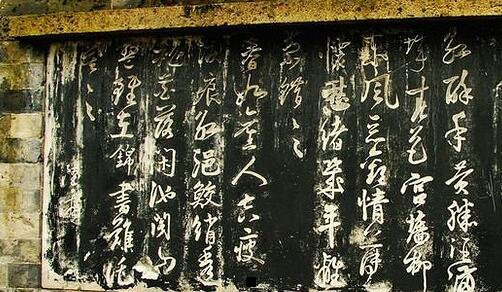 紅酥手黃縢酒滿
城春色宮牆柳
東風惡歡情薄一
懷愁緒幾年離
索錯〻〻
春如舊人空瘦
淚痕紅浥鮫綃透
桃花落閑池閣山
盟雖在錦書難託
莫〻〻